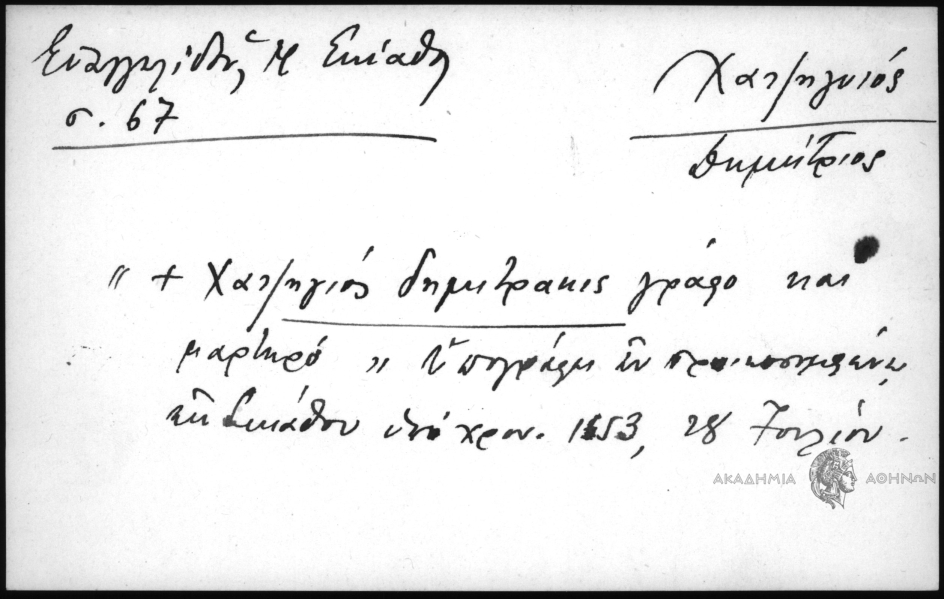 Ευαγγελίδου, Ἡ Σκίαθος
σ. 67
Χατζηγιός
Δημήτριος
" + Χατζηγιός δημιτρακις γράφο και
μαρτιρό " Ὑπογράφει ἐν προικοσυμφώνῳ
τῆς Σκιάθου ὑπό χρον. 1653, 28 Ἰουλίου.
ΑΚΑΔΗΜΙΑ ΑΘΗΝΩΝ